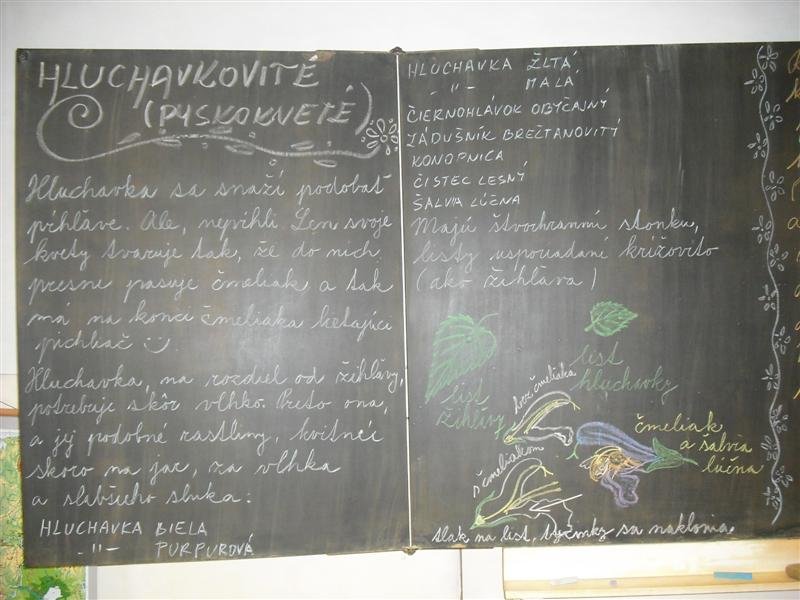 HLUCHAVKOVITÉ
(PYSKOKVETÉ)
Hluchavka sa snaží podobať
pŕhľave. Ale, nepŕhli. Len svoje
kvety tvaruje tak, že do nich
presne pasuje čmeliak a tak
má na konci čmeliaka lietajúci
pichliač
Hluchavka, na rozdiel od žihľavy,
potrebuje skôr vlhko. Preto ona,
a jej podobné rastliny, kvitnú
skoro na jar, za vlhka
a slabšieho slnka:
HLUCHAVKA BIELA
-"- PURPUROVÁ
HLUCHAVKA ŽLTÁ
-"- MALÁ
ČIERNOHLÁVOK OBYČAJNÝ
ZÁDUŠNÍK BREŽTANOVITÝ
KONOPNICA
ČISTEC LESNÝ
ŠALVIA LÚČNA
Majú štvorhrannú stonku,
listy usporiadané krížovito
(ako žihľava)
list
žihľavy
list
hluchavky
bez čmeliaka
s čmeliakom
čmeliak
a šalvia
lúčna
tlak na list, tyčinky sa naklonia